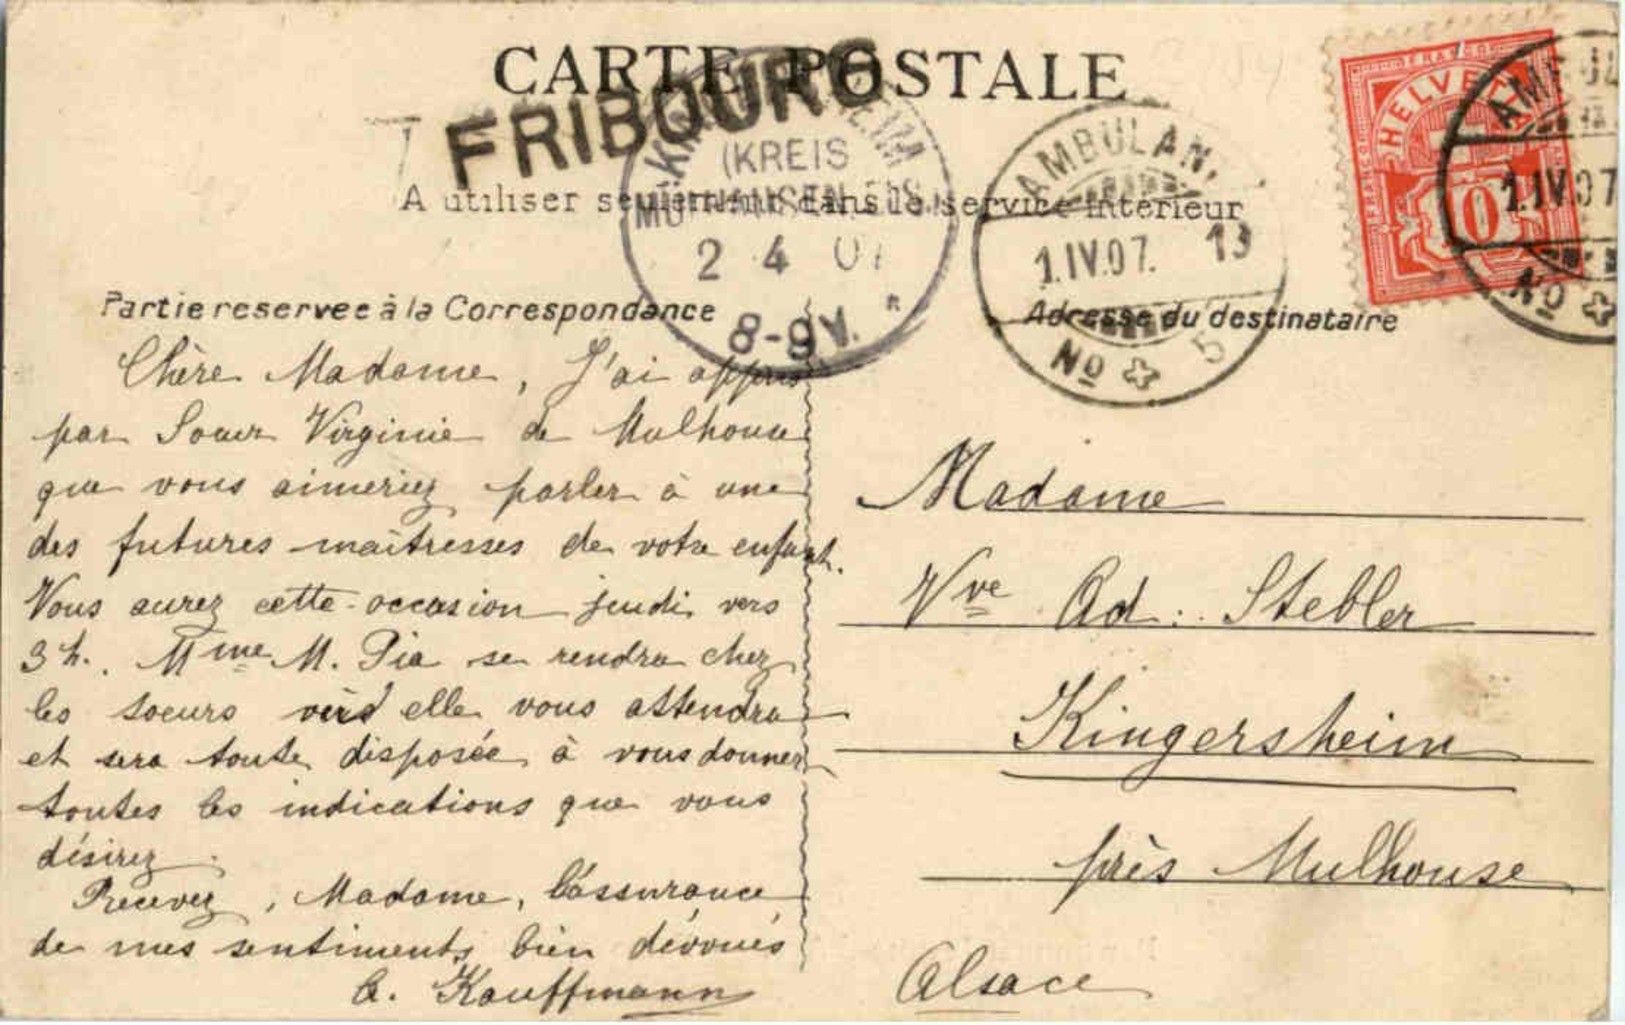 CARTE POSTALE
FRIBOURG
(KREIS
MÜLHAUSEN
2 4 07
8-9V.
A utiliser seulement dans le service intérieur
AMBULANT
1.IV.07. 13
No 5
HELVETIA
FRANCO
10
AMBUL
1.IV.07
No
Partie reservee à la Correspondance
Adresse du destinataire
Chère Madame, J'ai appris
par Soeur Virginie de Mulhouse
que vous aimeriez parler à une
des futures maîtresses de votre enfant.
Vous aurez cette occasion jeudi vers
3 h. Mme M. Pia se rendra chez
les soeurs elle vous attendra
et sera toute disposée à vous donner
toutes les indications que vous
désirez.
Recevez, Madame, l'assurance
de mes sentiments bien dévoués
Kauffmann
Madame
Vve Ad: Stebler
Kingersheim
près Mulhouse
Alsace